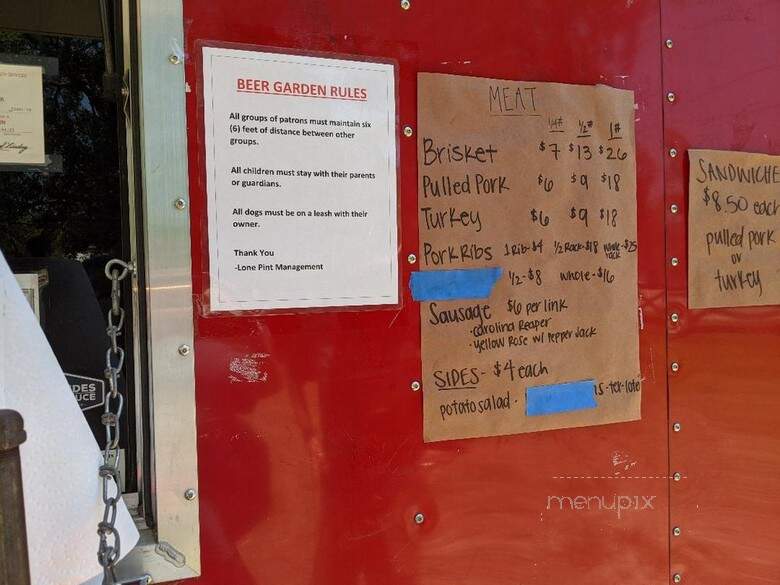 BEER GARDEN RULES
All groups of patrons must maintain six
(6) feet of distance between other
groups.
All children must stay with their parents
or guardians.
All dogs must be on a leash with their
owner.
Thank You
-Lone Pint Management
MEAT
1/4# 1/2# 1#
Brisket $7 $13 $26
Pulled Pork $6 $9 $18
Turkey $6 $9 $18
Pork Ribs 1 Rib-$4 1/2 Rack-$18 whole rack-$25
1/2-$8 whole-$16
Sausage $6 per link
•carolina Reaper
•yellow Rose w/ pepper Jack
SIDES- $4 each
potato salad • is-ter-tots
SANDWICHE
$8.50 each
pulled pork
or
turkey
DES
UCE
menupix